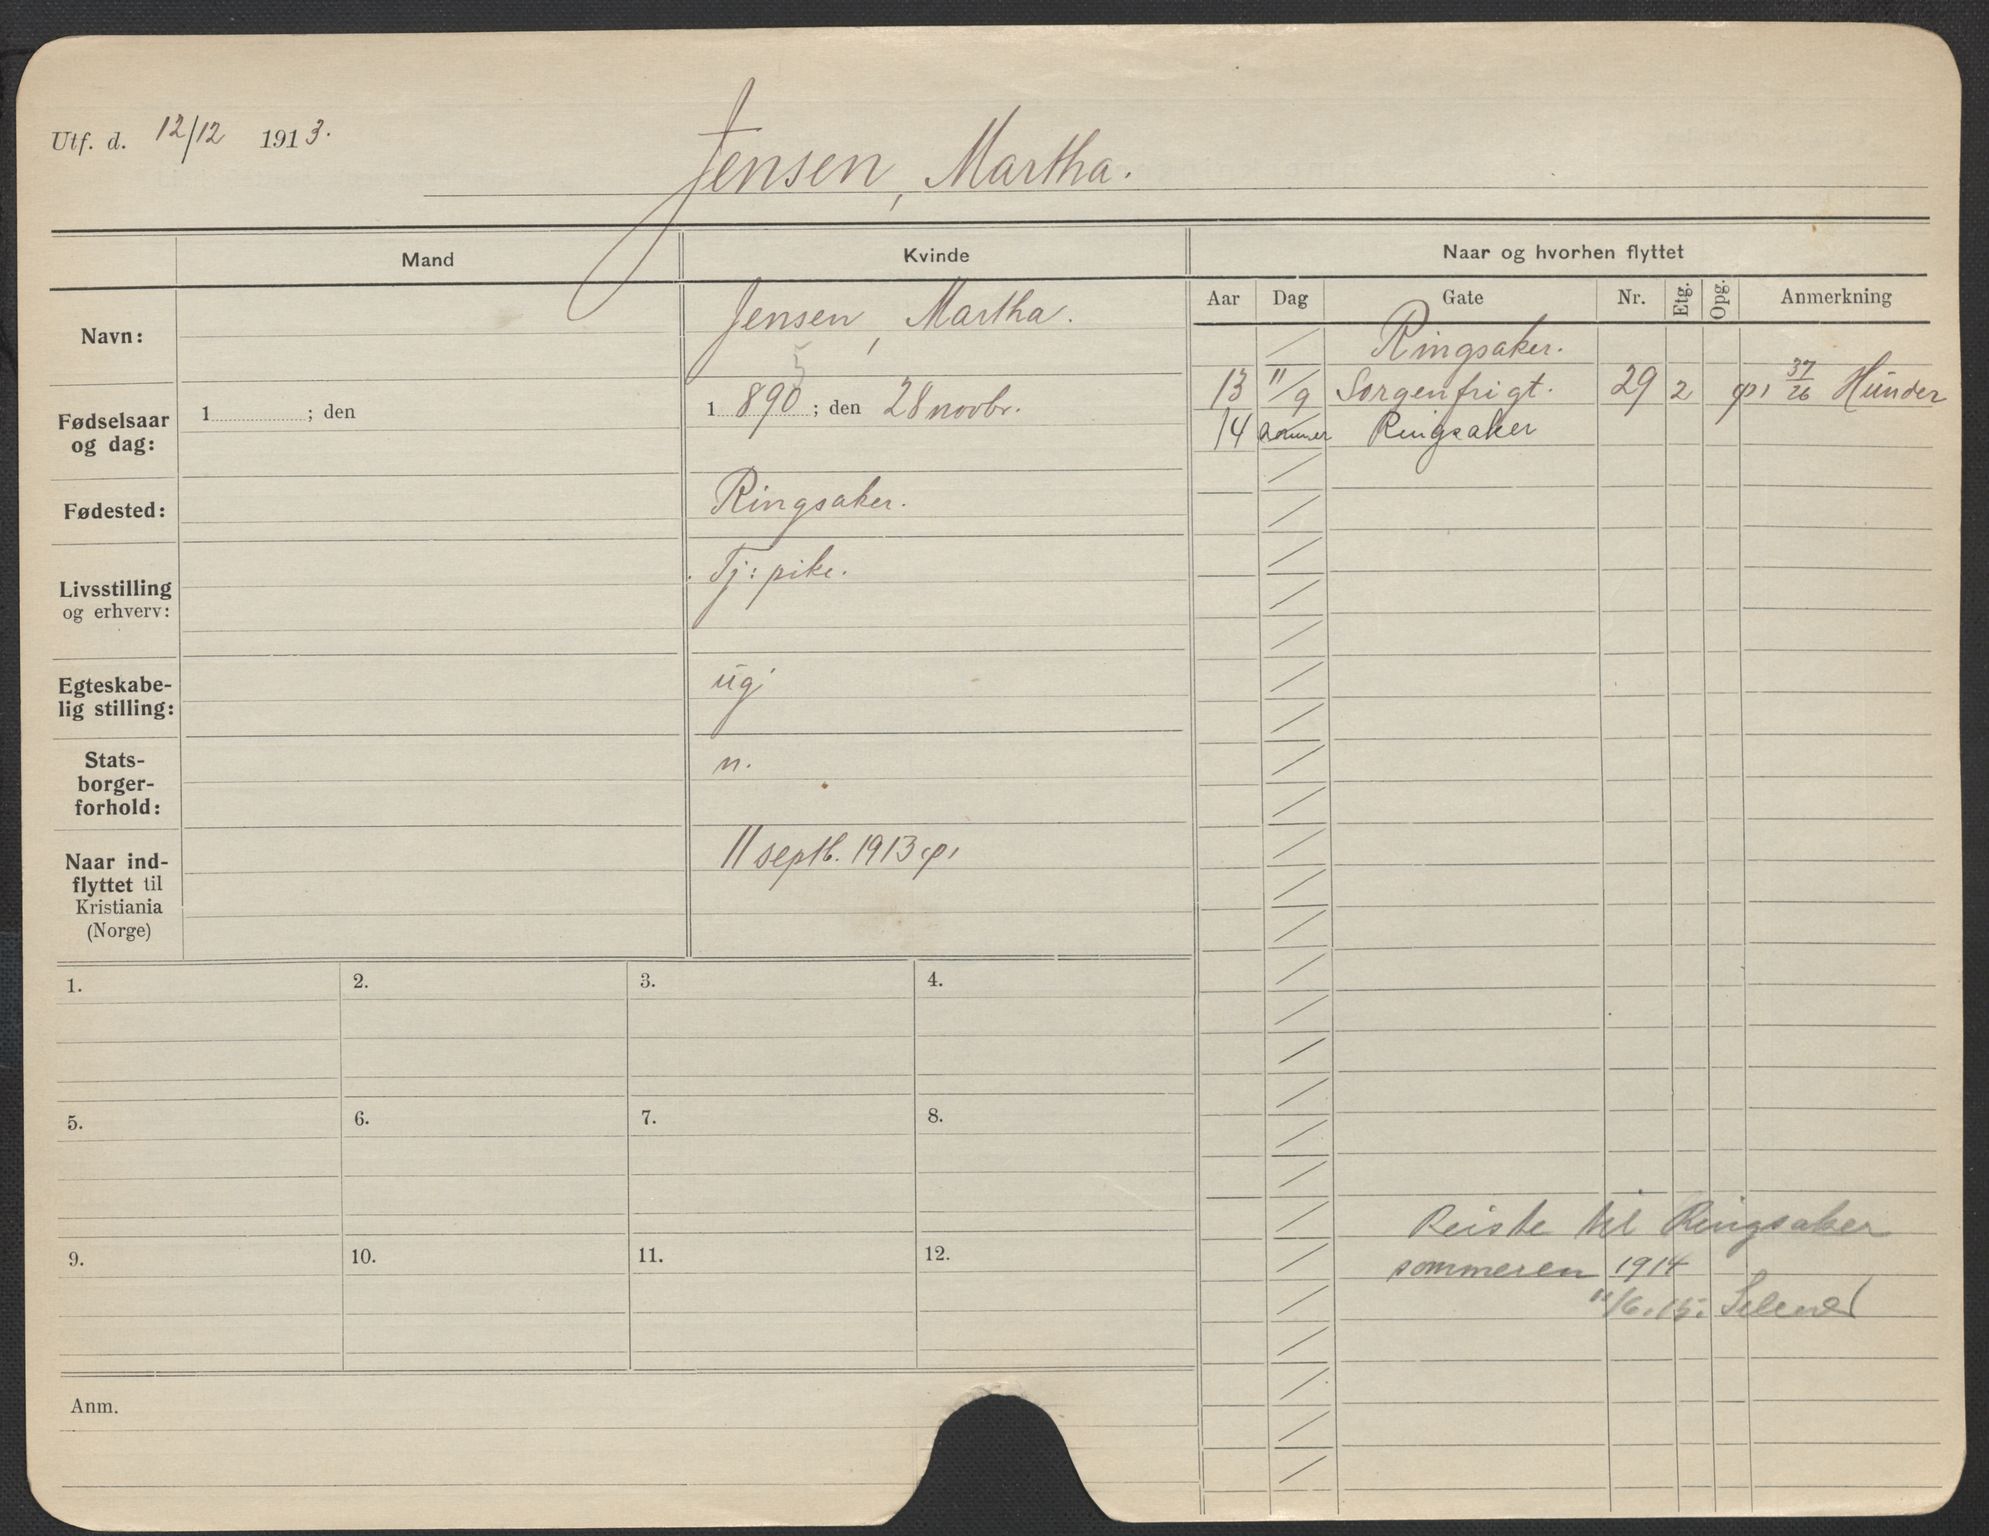 Utf. d. 12/12 1913.
Jensen, Martha.
Mand
Kvinde
Naar og hvorhen flyttet
Aar Dag Gate Nr. Etg. Opg. Anmerkning
Navn:
Jensen, Martha.
Fødselsaar
og dag:
1 ; den
5
1 890 ; den 28 novbr.
Fødested:
Ringsaker.
Livsstilling
og erhverv:
Tj: pike.
Egteskabe-
lig stilling:
ugj
Stats-
borger-
forhold:
n.
Naar ind-
flyttet til
Kristiania
(Norge)
11 septb. 1913
Ringsaker.
13 11/9 Sorgenfrigt. 29 2 37/26 Hunder
14 sommer Ringsaker
Reiste til Ringsaker
sommeren 1914
11/6.15.
1. 2. 3. 4.
5. 6. 7. 8.
9. 10. 11. 12.
Anm.